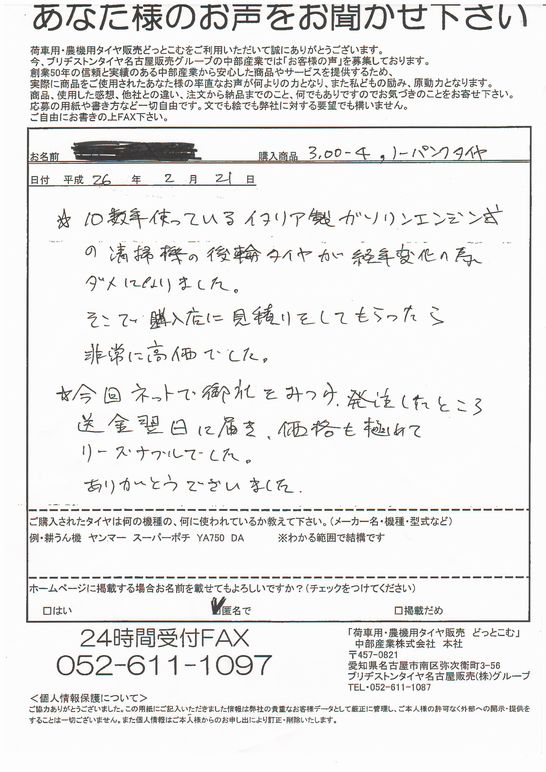 あなた様のお声をお聞かせ下さい
荷車用・農機用タイヤ販売どっとこむをご利用いただいて誠にありがとうございます。
今、ブリヂストンタイヤ名古屋販売グループの中部産業では「お客様の声」を募集しております。
創業50年の信頼と実績のある中部産業から安心した商品やサービスを提供するため、
実際に商品をご使用されたあなた様の率直なお声が何よりの力となり、また私どもの励み、原動力となります。
商品、使用した感想、他社との違い、注文から納品までのこと、何でもありですのでお気づきのことをお寄せ下さい。
応募の用紙や書き方など一切自由です。文でも絵でも弊社に対する要望でも構いません。
ご自由にお書きの上FAX下さい。
お名前 購入商品 3.00-4,ノーパンクタイヤ
日付 平成 26 年 2 月 21 日
☆10数年使っているイタリア製ガソリンエンジン式
の清掃機の後輪タイヤが経年変化の為
ダメになりました。
そこで購入店に見積りをしてもらったら
非常に高価でした。
☆今回ネットで御社をみつけ、発注したところ
送金翌日に届き、価格も極めて
リーズナブルでした。
ありがとうございました。
ご購入されたタイヤは何の機種の、何に使われているか教えて下さい。(メーカー名・機種・型式など)
例・耕うん機 ヤンマー スーパーポチ YA750 DA ※わかる範囲で結構です
ホームページに掲載する場合お名前を載せてもよろしいですか?(チェックをつけてください)
□はい ☑匿名で □掲載だめ
24時間受付FAX
052-611-1097
「荷車用・農機用タイヤ販売 どっとこむ」
中部産業株式会社 本社
〒457-0821
愛知県名古屋市南区弥次衛町3-56
ブリヂストンタイヤ名古屋販売(株)グループ
TEL・052-611-1087
<個人情報保護について>
ご協力ありがとうございました。この用紙にご記入いただきました情報は弊社の貴重なお客様データとして厳正に管理し、ご本人様の許可なく外部への開示・提供を
することは一切ございません。また個人情報はご本人様からのお申し出により訂正・削除いたします。